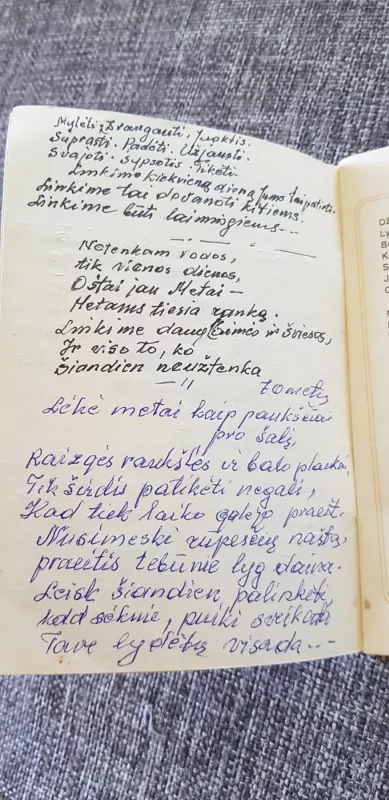 Mylėti, Brangauti, Juoktis.
Suprasti. Padėti. Užjausti.
Svajoti. Šypsotis. Tikėti.
Linkime kiekvieną dieną Jums tai patirti.
Linkime tai dovanoti kitiems.
Linkime būti laimingiems...
Netenkam vados,
tik vienos dienos,
O štai jau Metai —
Metams tiesia ranką.
Linkime daug žiemos ir šviesos,
Ir viso to, ko
šiandien neužtenka
— 11
70 metų
Lėkė metai kaip paukščiai
pro šalį,
Raizgės raukšlės ir balo plaukai,
Tik širdis patikėti negali,
Kad tiek laiko galėjo praeit.
Nusimeski rūpesčių naštą,
praeitis tebūnie lyg daina.
Leisk šiandien palinkėti,
kad sėkmė, puiki sveikata
Tave lydėtų visada...
Ly
B
K
S
J